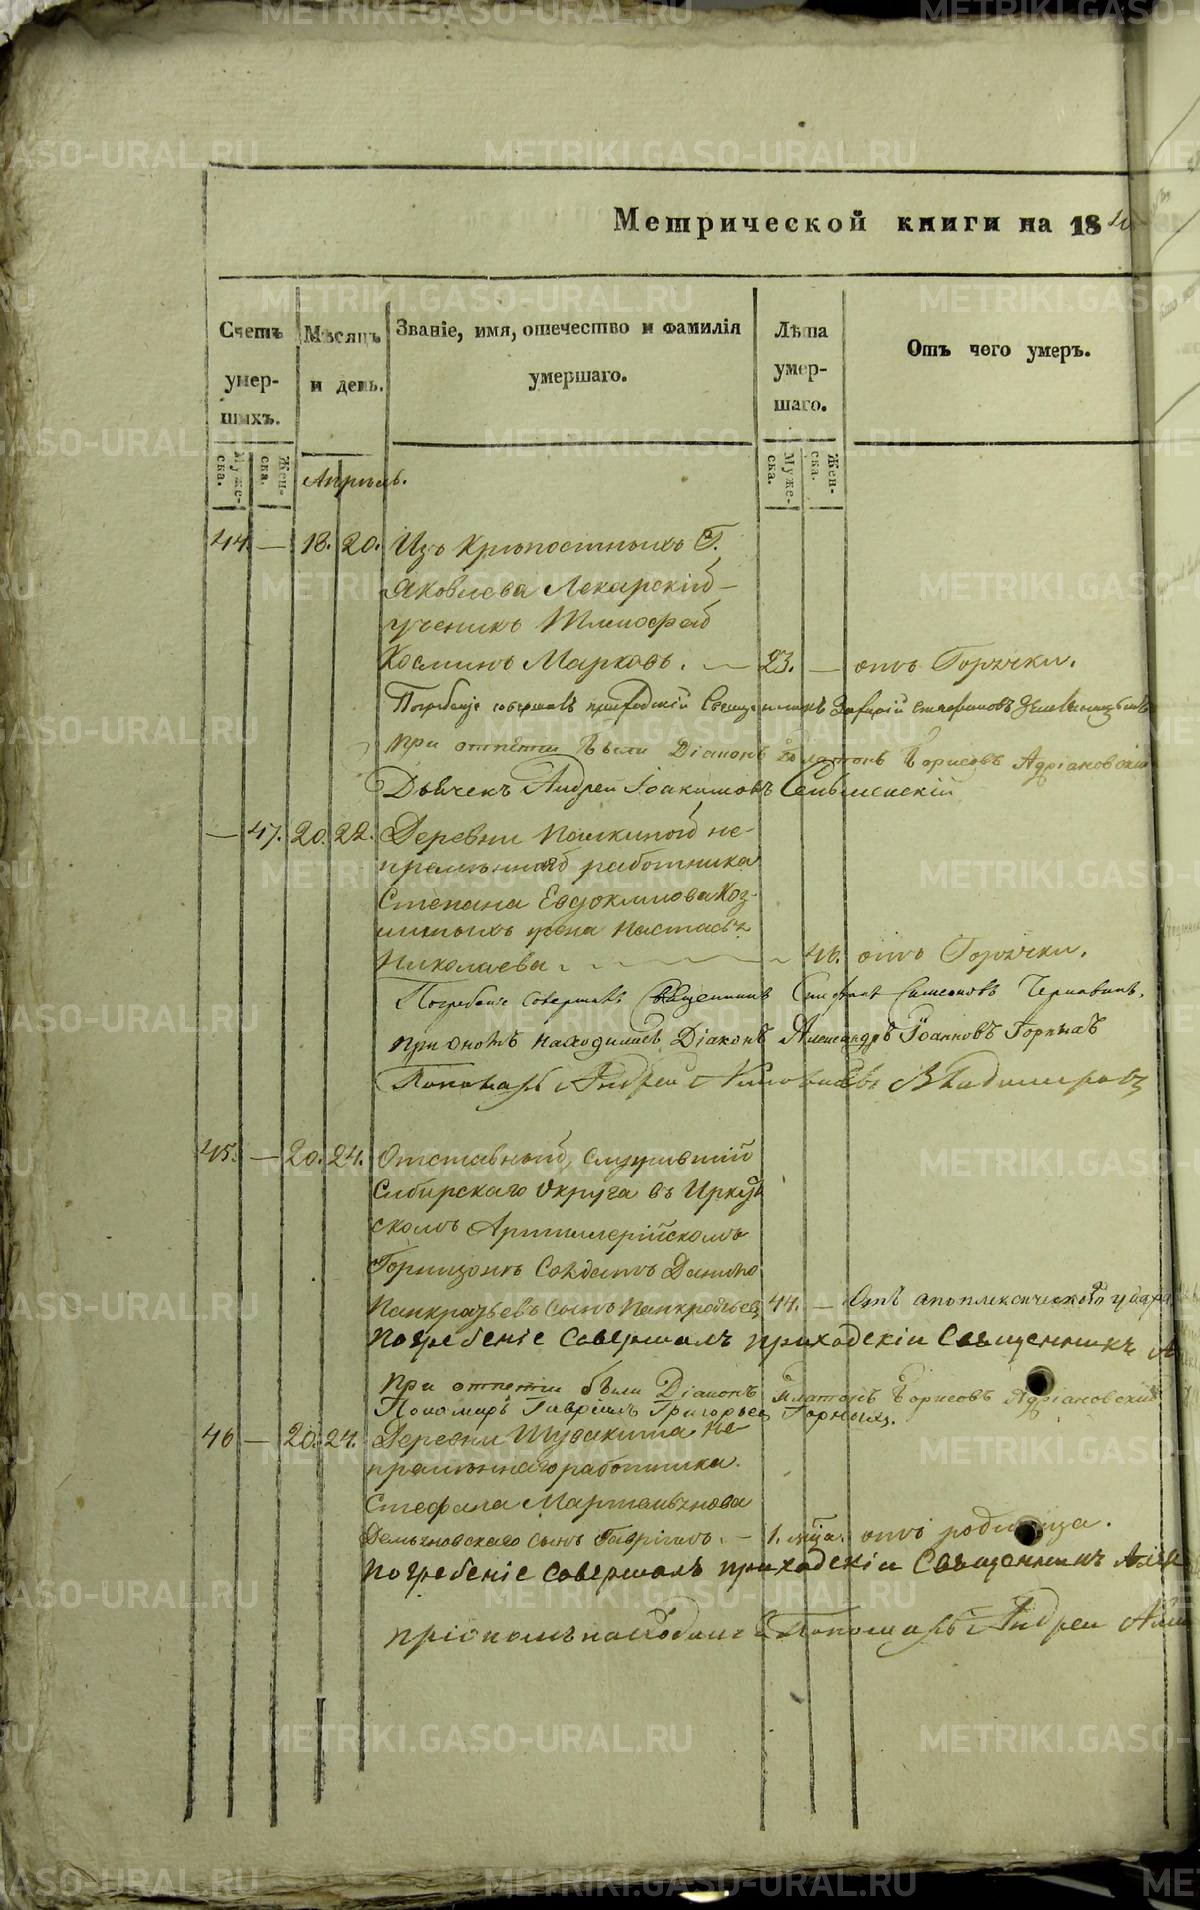 Метрической книги на 18
Счетъ умершихъ.
Мѣсяцъ и день.
Званіе, имя, отечество и фамилія умершаго.
Лѣта умершаго.
Отъ чего умеръ.
Муже-ска.
Жен-ска.
Муже-ска.
Жен-ска.
Апрель.
44. — 18. 20. Изъ Крѣпостныхъ Г.
Яковлева Лекарскій
ученикъ
Косминъ Марковъ. — 23. — отъ Горячки.
Погребеніе совершалъ приходскій Священникъ Стефановъ
при отпетіи были Діаконъ Платонъ Борисовъ Адріановскій
Дьячекъ Андрей Іоакимовъ
— 47. 20. 22. Деревни не-
премѣннаго работника
Степана Евдокимова Коз-
жена Настасья
Николаева. — 46. отъ Горячки.
Погребеніе совершалъ Священникъ Стефанъ Симеоновъ
при ономъ находились Діаконъ Александръ Іоанновъ Горныхъ
Пономарь Андрей Владимировъ
45. — 20. 24. Отставный, служившій
Сибирскаго Округа въ Иркут-
скомъ Артиллерійскомъ
Горнизонѣ Солдатъ Данило
Панкратьевъ сынъ Панкратьевъ 44. — Отъ апоплексическаго удара
погребеніе совершалъ приходскіи Священникъ А
при отпетіи были Діаконъ Платонъ Борисовъ Адріановскій
Пономарь Гавріилъ Григорьевъ Горныхъ.
46 — 20. 24. Деревни Шувакиша не-
премѣннаго работника
Стефана
сынъ Гавріилъ. — 1. мца. отъ родимца.
погребеніе совершалъ приходскіи Священникъ Алек
Пономарь Андреи
METRIKI.GASO-URAL.RU